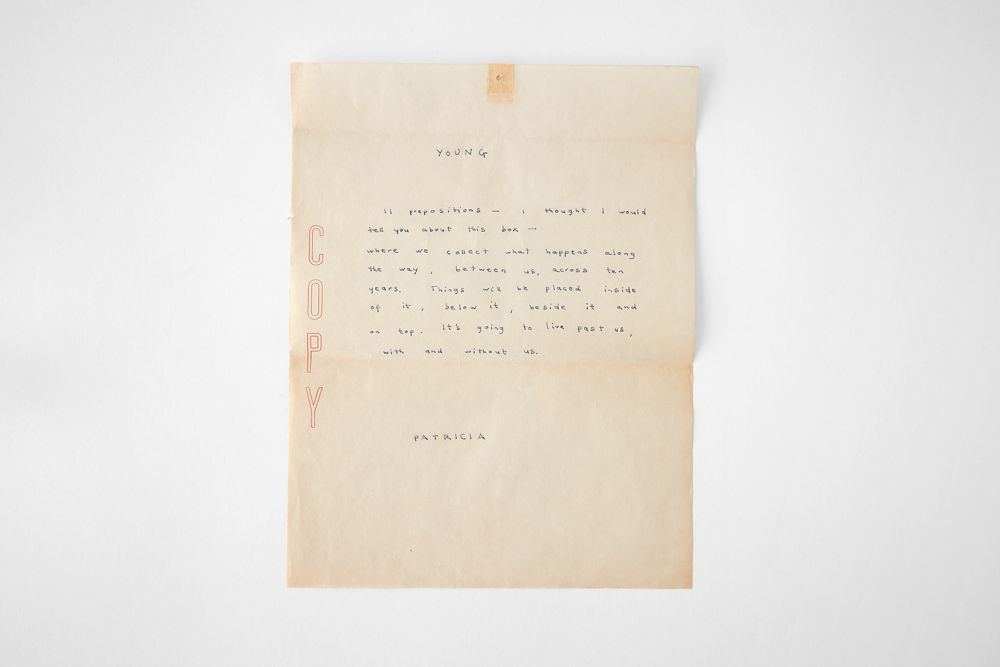 YOUNG
11 prepositions — i thought I would
tell you about this box —
where we collect what happens along
the way, between us, across ten
years. Things will be placed inside
of it, below it, beside it and
on top. It's going to live past us,
with and without us.
COPY
PATRICIA